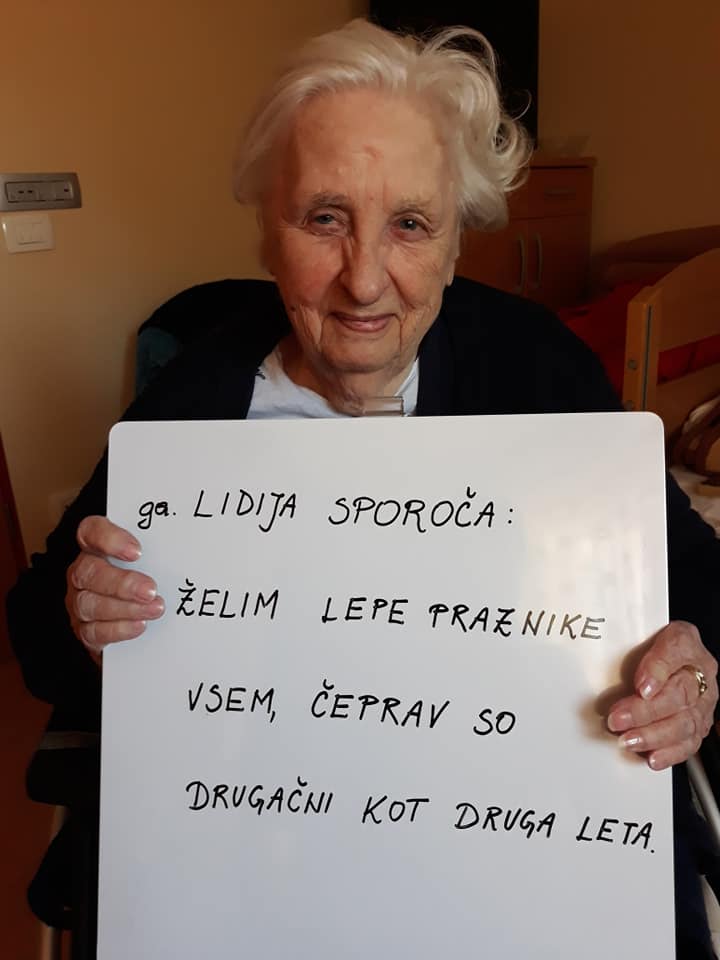 ga. LIDIJA SPOROČA:
ŽELIM LEPE PRAZNIKE
VSEM, ČEPRAV SO
DRUGAČNI KOT DRUGA LETA.